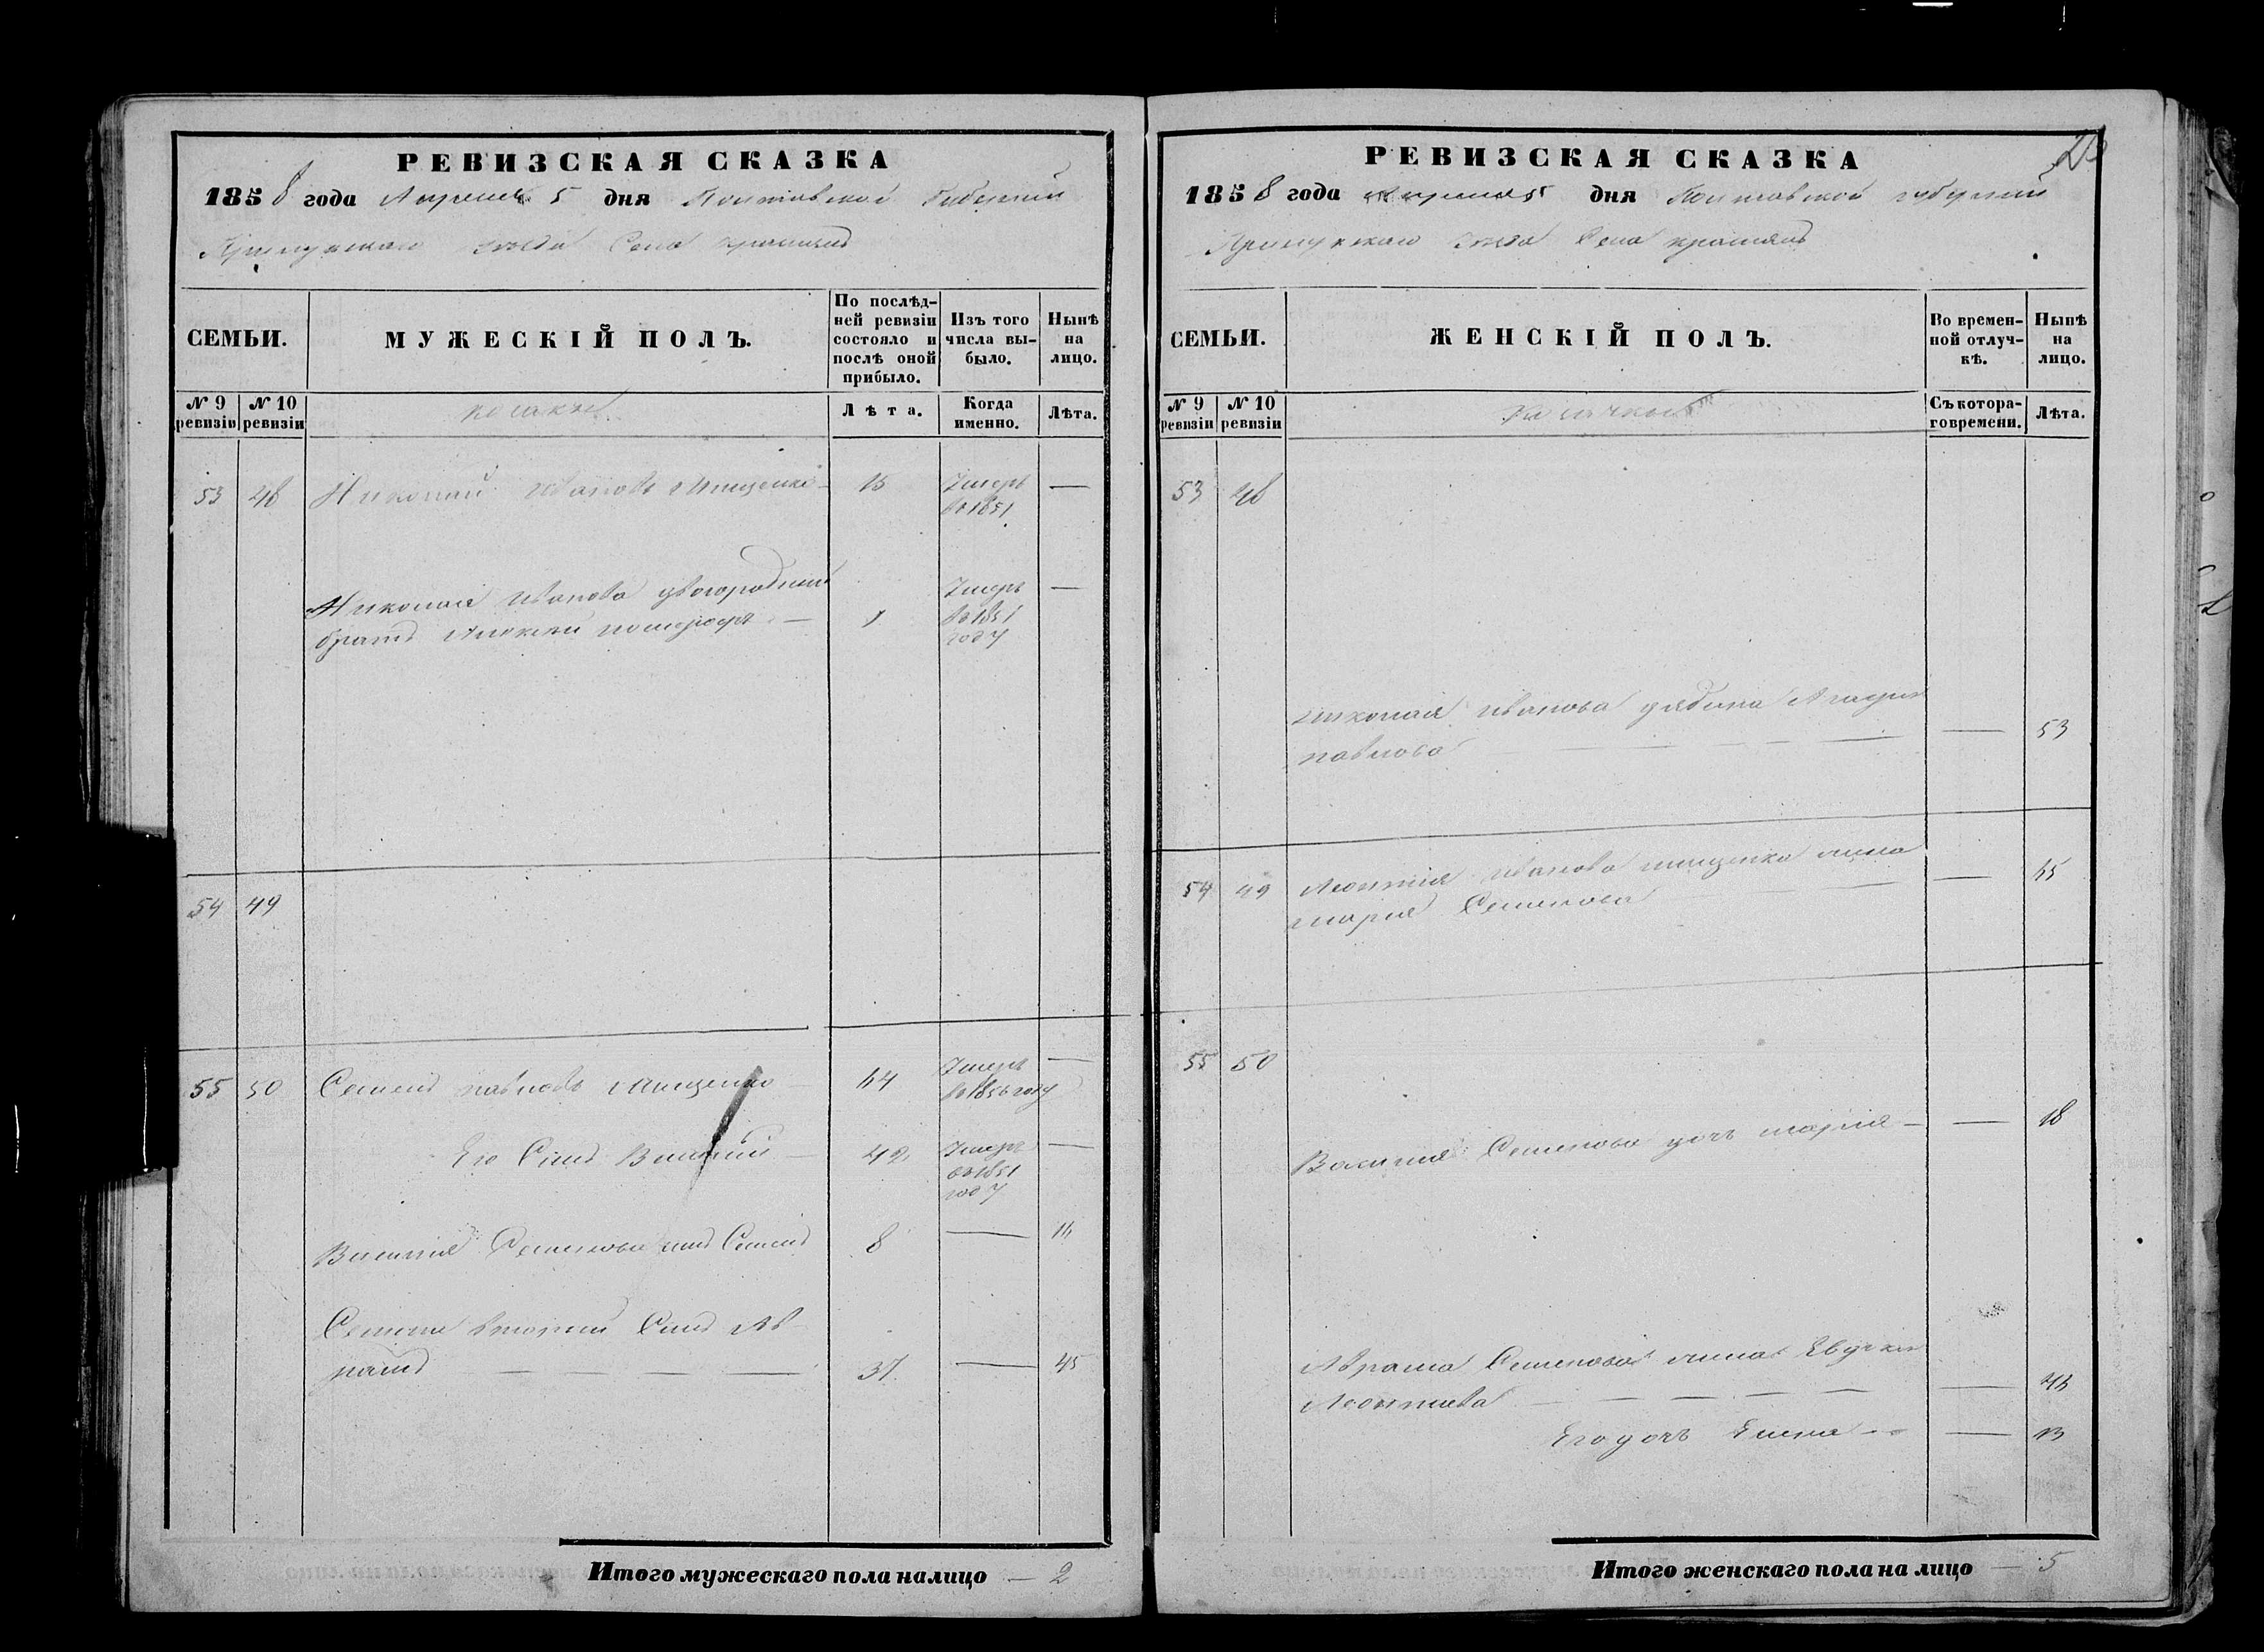 РЕВИЗСКАЯ СКАЗКА
1858 года Апреля 5 дня Полтавской Губернии
Прилукскаго уезда Села
СЕМЬИ.
МУЖЕСКІЙ ПОЛЪ.
По послѣд-
ней ревизіи
состояло и
послѣ оной
прибыло.
Изъ того
числа вы-
было.
Нынѣ
на
лицо.
№ 9
ревизіи
№ 10
ревизіи
козаки
Лѣта.
Когда
именно.
Лѣта.
53 48 Николай Ивановъ Мищенко 15 Умеръ
въ 1851
Николая Иванова двоюродный
братъ Алексей 1 Умеръ
въ 1851
году
54 49
55 50 Семенъ Павловъ Мищенко 64 Умеръ
въ 1856 году
Его Сынъ Василий 42 Умеръ
въ 1851
году
Василия Семенова сынъ Семенъ 8 — 16
Семена вторый Сынъ Ав-
рамъ 37 — 45
Итого мужескаго пола налицо — 2
РЕВИЗСКАЯ СКАЗКА
1858 года Апреля 5 дня Полтавской губернии
Прилукскаго уезда Села
СЕМЬИ.
ЖЕНСКІЙ ПОЛЪ.
Во времен-
ной отлуч-
кѣ.
Нынѣ
на
лицо.
№ 9
ревизіи
№ 10
ревизіи
Съ котора-
го времени.
Лѣта.
53 48
Николая Иванова
Павлова — 53
54 49 Леонтия Иванова Мищенка жена
Мария Семенова —
55 50
Василия Семенова дочь Мария — 18
Аврама Семенова жена
Леонтиева —
Его дочь Елена — 13
Итого женскаго пола на лицо — 5